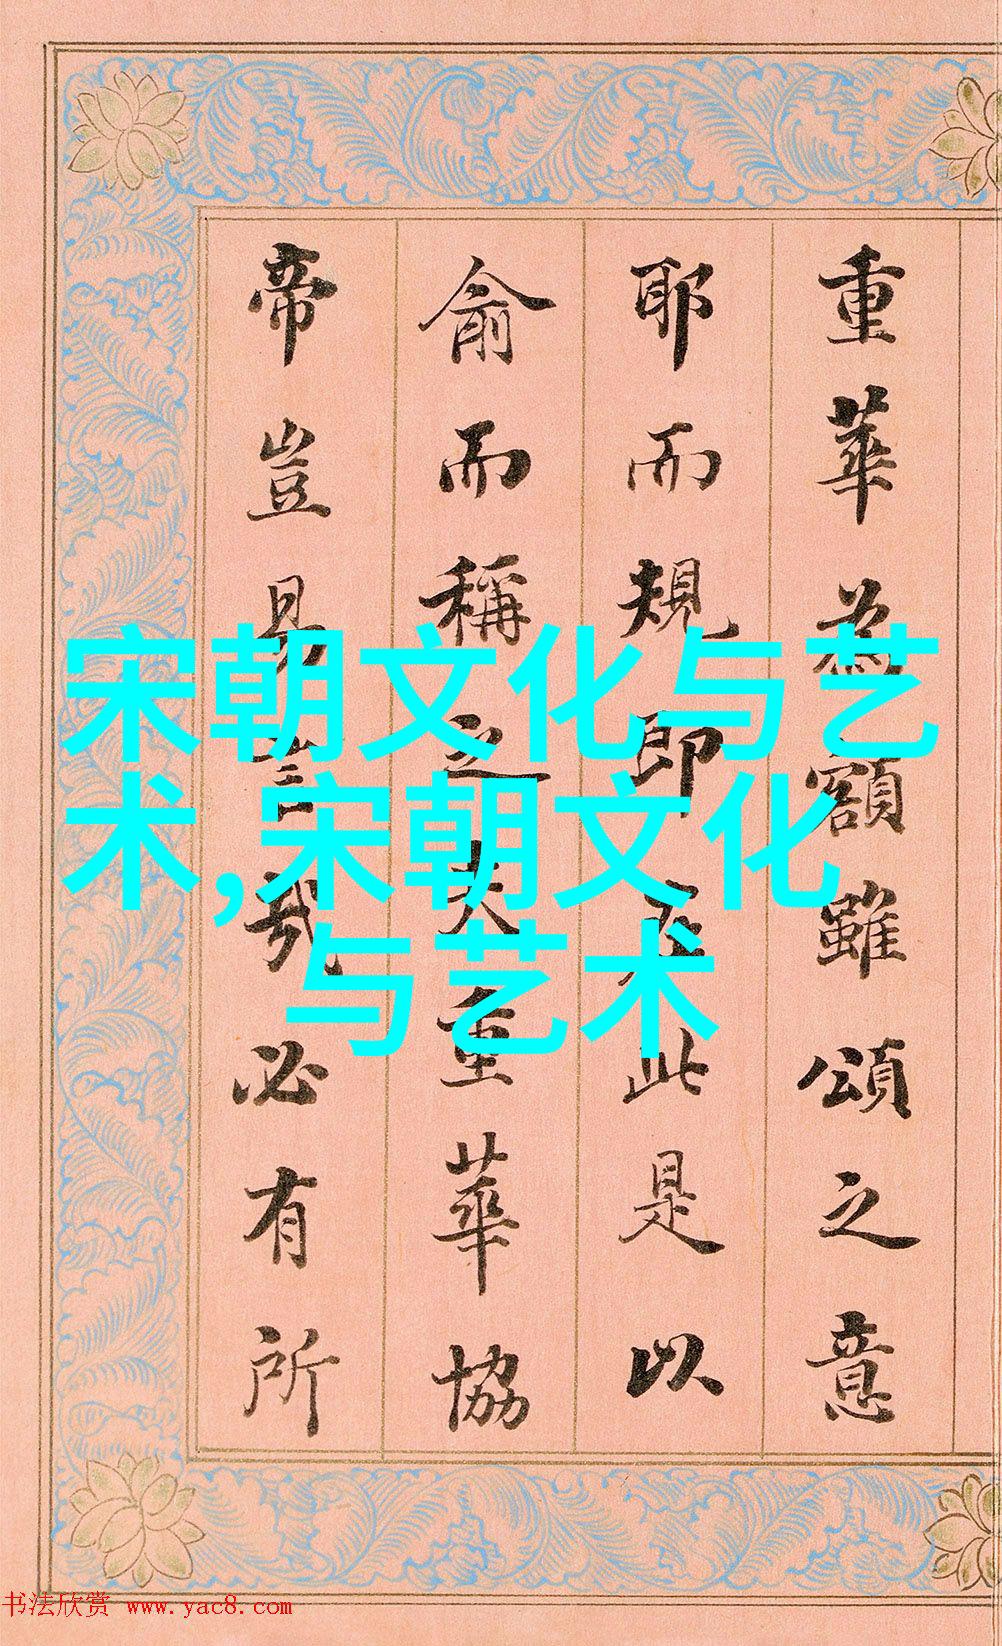 重華為額雖頌之意
耶而規即在此是以
俞而稱之夫重華協
帝豈易言哉必有所
宋朝文化与艺
术,宋朝文化
与艺术
书法欣赏 www.yac8.com